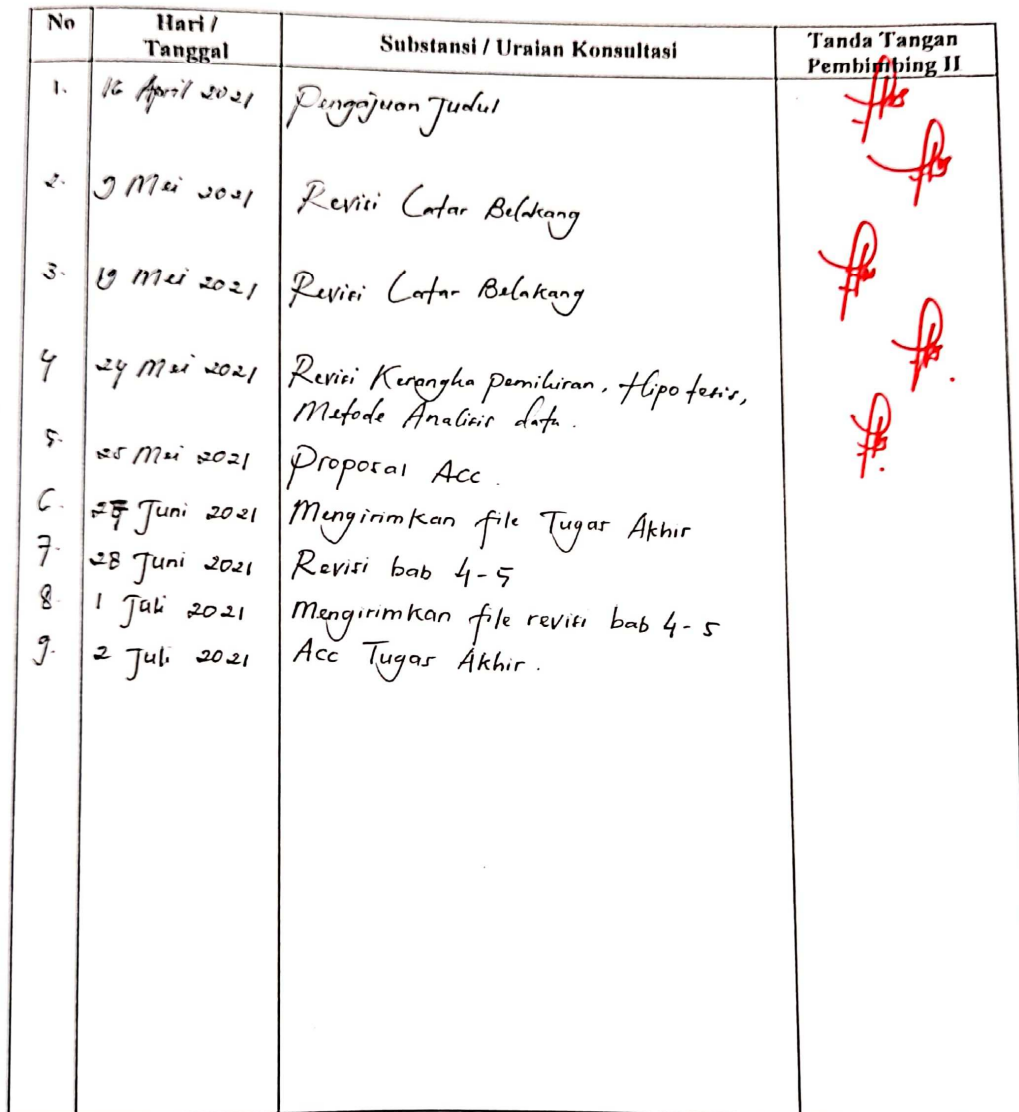 No Hari / Tanggal Substansi / Uraian Konsultasi Tanda Tangan Pembimbing II
1. 16 April 2021 Pengajuan Judul
2. 9 Mei 2021 Revisi Latar Belakang
3. 19 Mei 2021 Revisi Latar Belakang
4 24 Mei 2021 Revisi Kerangka pemikiran, Hipotesis,
Metode Analisis data.
5. 25 Mei 2021 Proposal Acc.
6. Juni 2021 Mengirimkan file Tugas Akhir
7. 28 Juni 2021 Revisi bab 4-5
8. 1 Juli 2021 Mengirimkan file revisi bab 4-5
9. 2 Juli 2021 Acc Tugas Akhir.